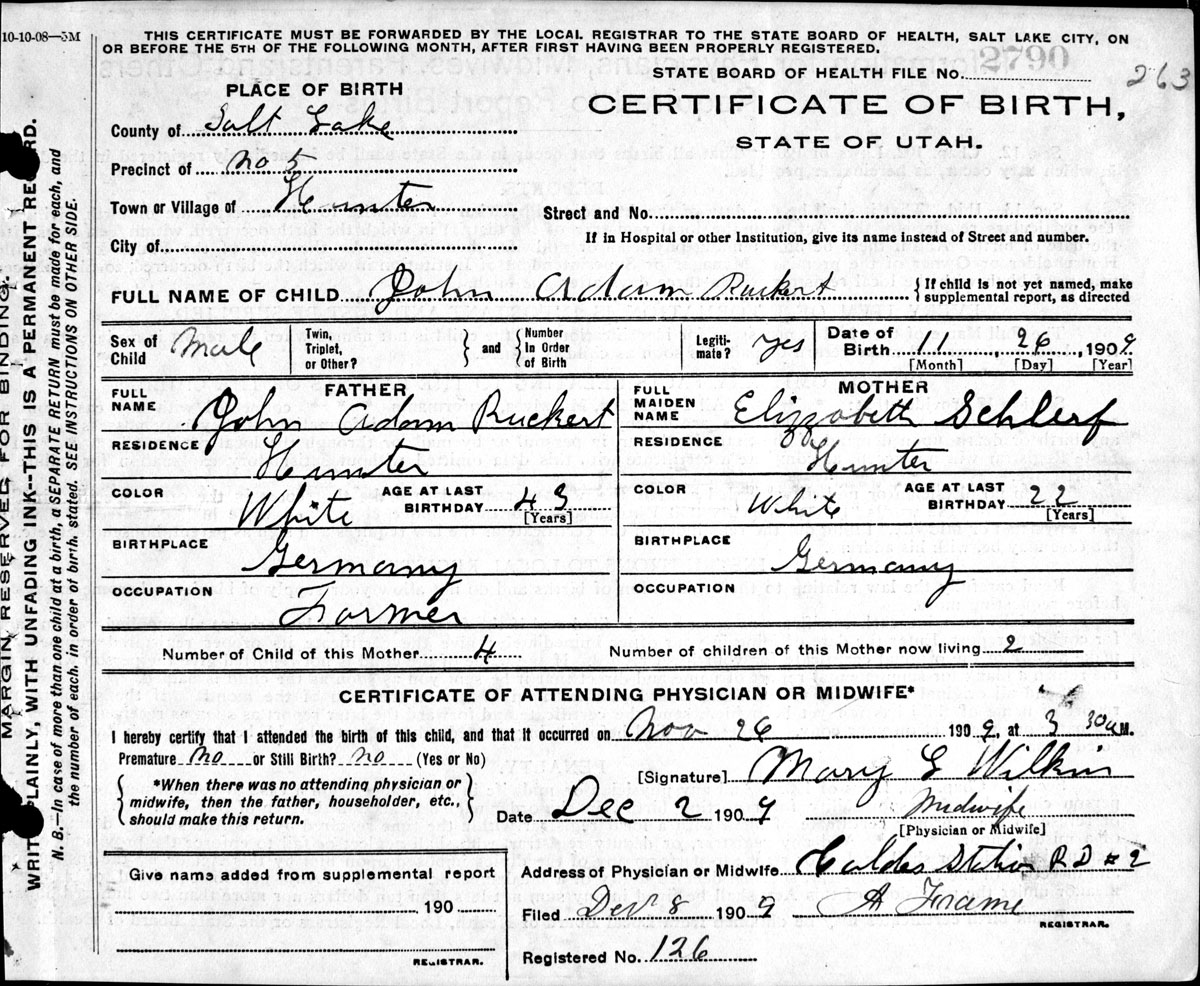 10-10-08—5M
THIS CERTIFICATE MUST BE FORWARDED BY THE LOCAL REGISTRAR TO THE STATE BOARD OF HEALTH, SALT LAKE CITY, ON
OR BEFORE THE 5TH OF THE FOLLOWING MONTH, AFTER FIRST HAVING BEEN PROPERLY REGISTERED.
STATE BOARD OF HEALTH FILE No. 2790
263
PLACE OF BIRTH
CERTIFICATE OF BIRTH,
STATE OF UTAH.
County of Salt Lake
Precinct of No 5
Town or Village of Hunter
Street and No.
City of
If in Hospital or other Institution, give its name instead of Street and number.
FULL NAME OF CHILD John Adam Ruckert { If child is not yet named, make supplemental report, as directed
Sex of Child Male Twin, Triplet, or Other? } and { Number In Order of Birth Legiti-mate? Yes Date of Birth 11, 26, 1909
[Month] [Day] [Year]
FATHER
FULL NAME John Adam Ruckert
RESIDENCE Hunter
COLOR White AGE AT LAST BIRTHDAY 43 [Years]
BIRTHPLACE Germany
OCCUPATION Farmer
MOTHER
FULL MAIDEN NAME Elizabeth Schlerf
RESIDENCE Hunter
COLOR White AGE AT LAST BIRTHDAY 22 [Years]
BIRTHPLACE Germany
OCCUPATION
Number of Child of this Mother 4 Number of children of this Mother now living 2
CERTIFICATE OF ATTENDING PHYSICIAN OR MIDWIFE*
I hereby certify that I attended the birth of this child, and that it occurred on Nov 26 1909, at 3 30 a M.
Premature No or Still Birth? No (Yes or No)
{ *When there was no attending physician or midwife, then the father, householder, etc., should make this return. }
[Signature] Mary E Wilkin
Date Dec 2 1909 Midwife
[Physician or Midwife]
Give name added from supplemental report
190
REGISTRAR.
Address of Physician or Midwife R D # 2
Filed Dec 8 1909 A Frame
REGISTRAR.
Registered No. 126
MARGIN RESERVED FOR BINDING.
WRITE PLAINLY, WITH UNFADING INK--THIS IS A PERMANENT RECORD.
N. B.—In case of more than one child at a birth, a SEPARATE RETURN must be made for each, and
the number of each, in order of birth, stated. SEE INSTRUCTIONS ON OTHER SIDE.